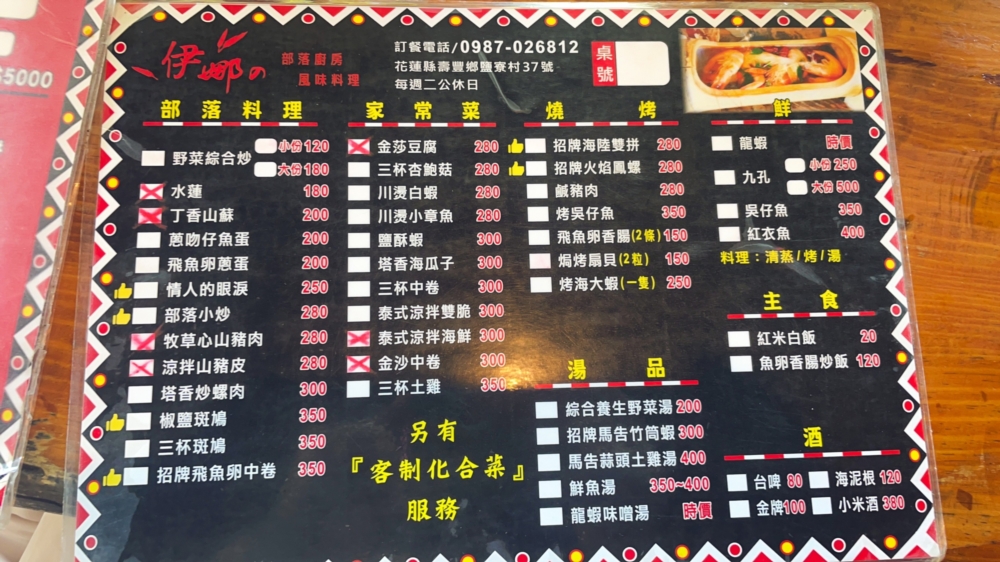 5000
伊娜の
部落廚房
風味料理
訂餐電話/0987-026812
花蓮縣壽豐鄉鹽寮村37號
每週二公休日
桌號
部落料理
野菜綜合炒 小份 120
大份 180
水蓮 180
丁香山蘇 200
蔥吻仔魚蛋 200
飛魚卵蔥蛋 200
情人的眼淚 250
部落小炒 280
牧草心山豬肉 280
涼拌山豬皮 280
塔香炒螺肉 300
椒鹽斑鳩 350
三杯斑鳩 350
招牌飛魚卵中卷 350
家常菜
金莎豆腐 280
三杯杏鮑菇 280
川燙白蝦 280
川燙小章魚 280
鹽酥蝦 300
塔香海瓜子 300
三杯中卷 300
泰式涼拌雙脆 300
泰式涼拌海鮮 300
金沙中卷 300
三杯土雞 350
另有
『客制化合菜』
服務
燒烤
招牌海陸雙拼 280
招牌火焰鳳螺 280
鹹豬肉 280
烤吳仔魚 350
飛魚卵香腸(2條) 150
焗烤扇貝(2粒) 150
烤海大蝦(一隻) 250
湯品
綜合養生野菜湯 200
招牌馬告竹筒蝦 300
馬告蒜頭土雞湯 400
鮮魚湯 350~400
龍蝦味噌湯 時價
鮮
龍蝦 時價
九孔 小份 250
大份 500
吳仔魚 350
紅衣魚 400
料理：清蒸/烤/湯
主食
紅米白飯 20
魚卵香腸炒飯 120
酒
台啤 80 海泥根 120
金牌 100 小米酒 380